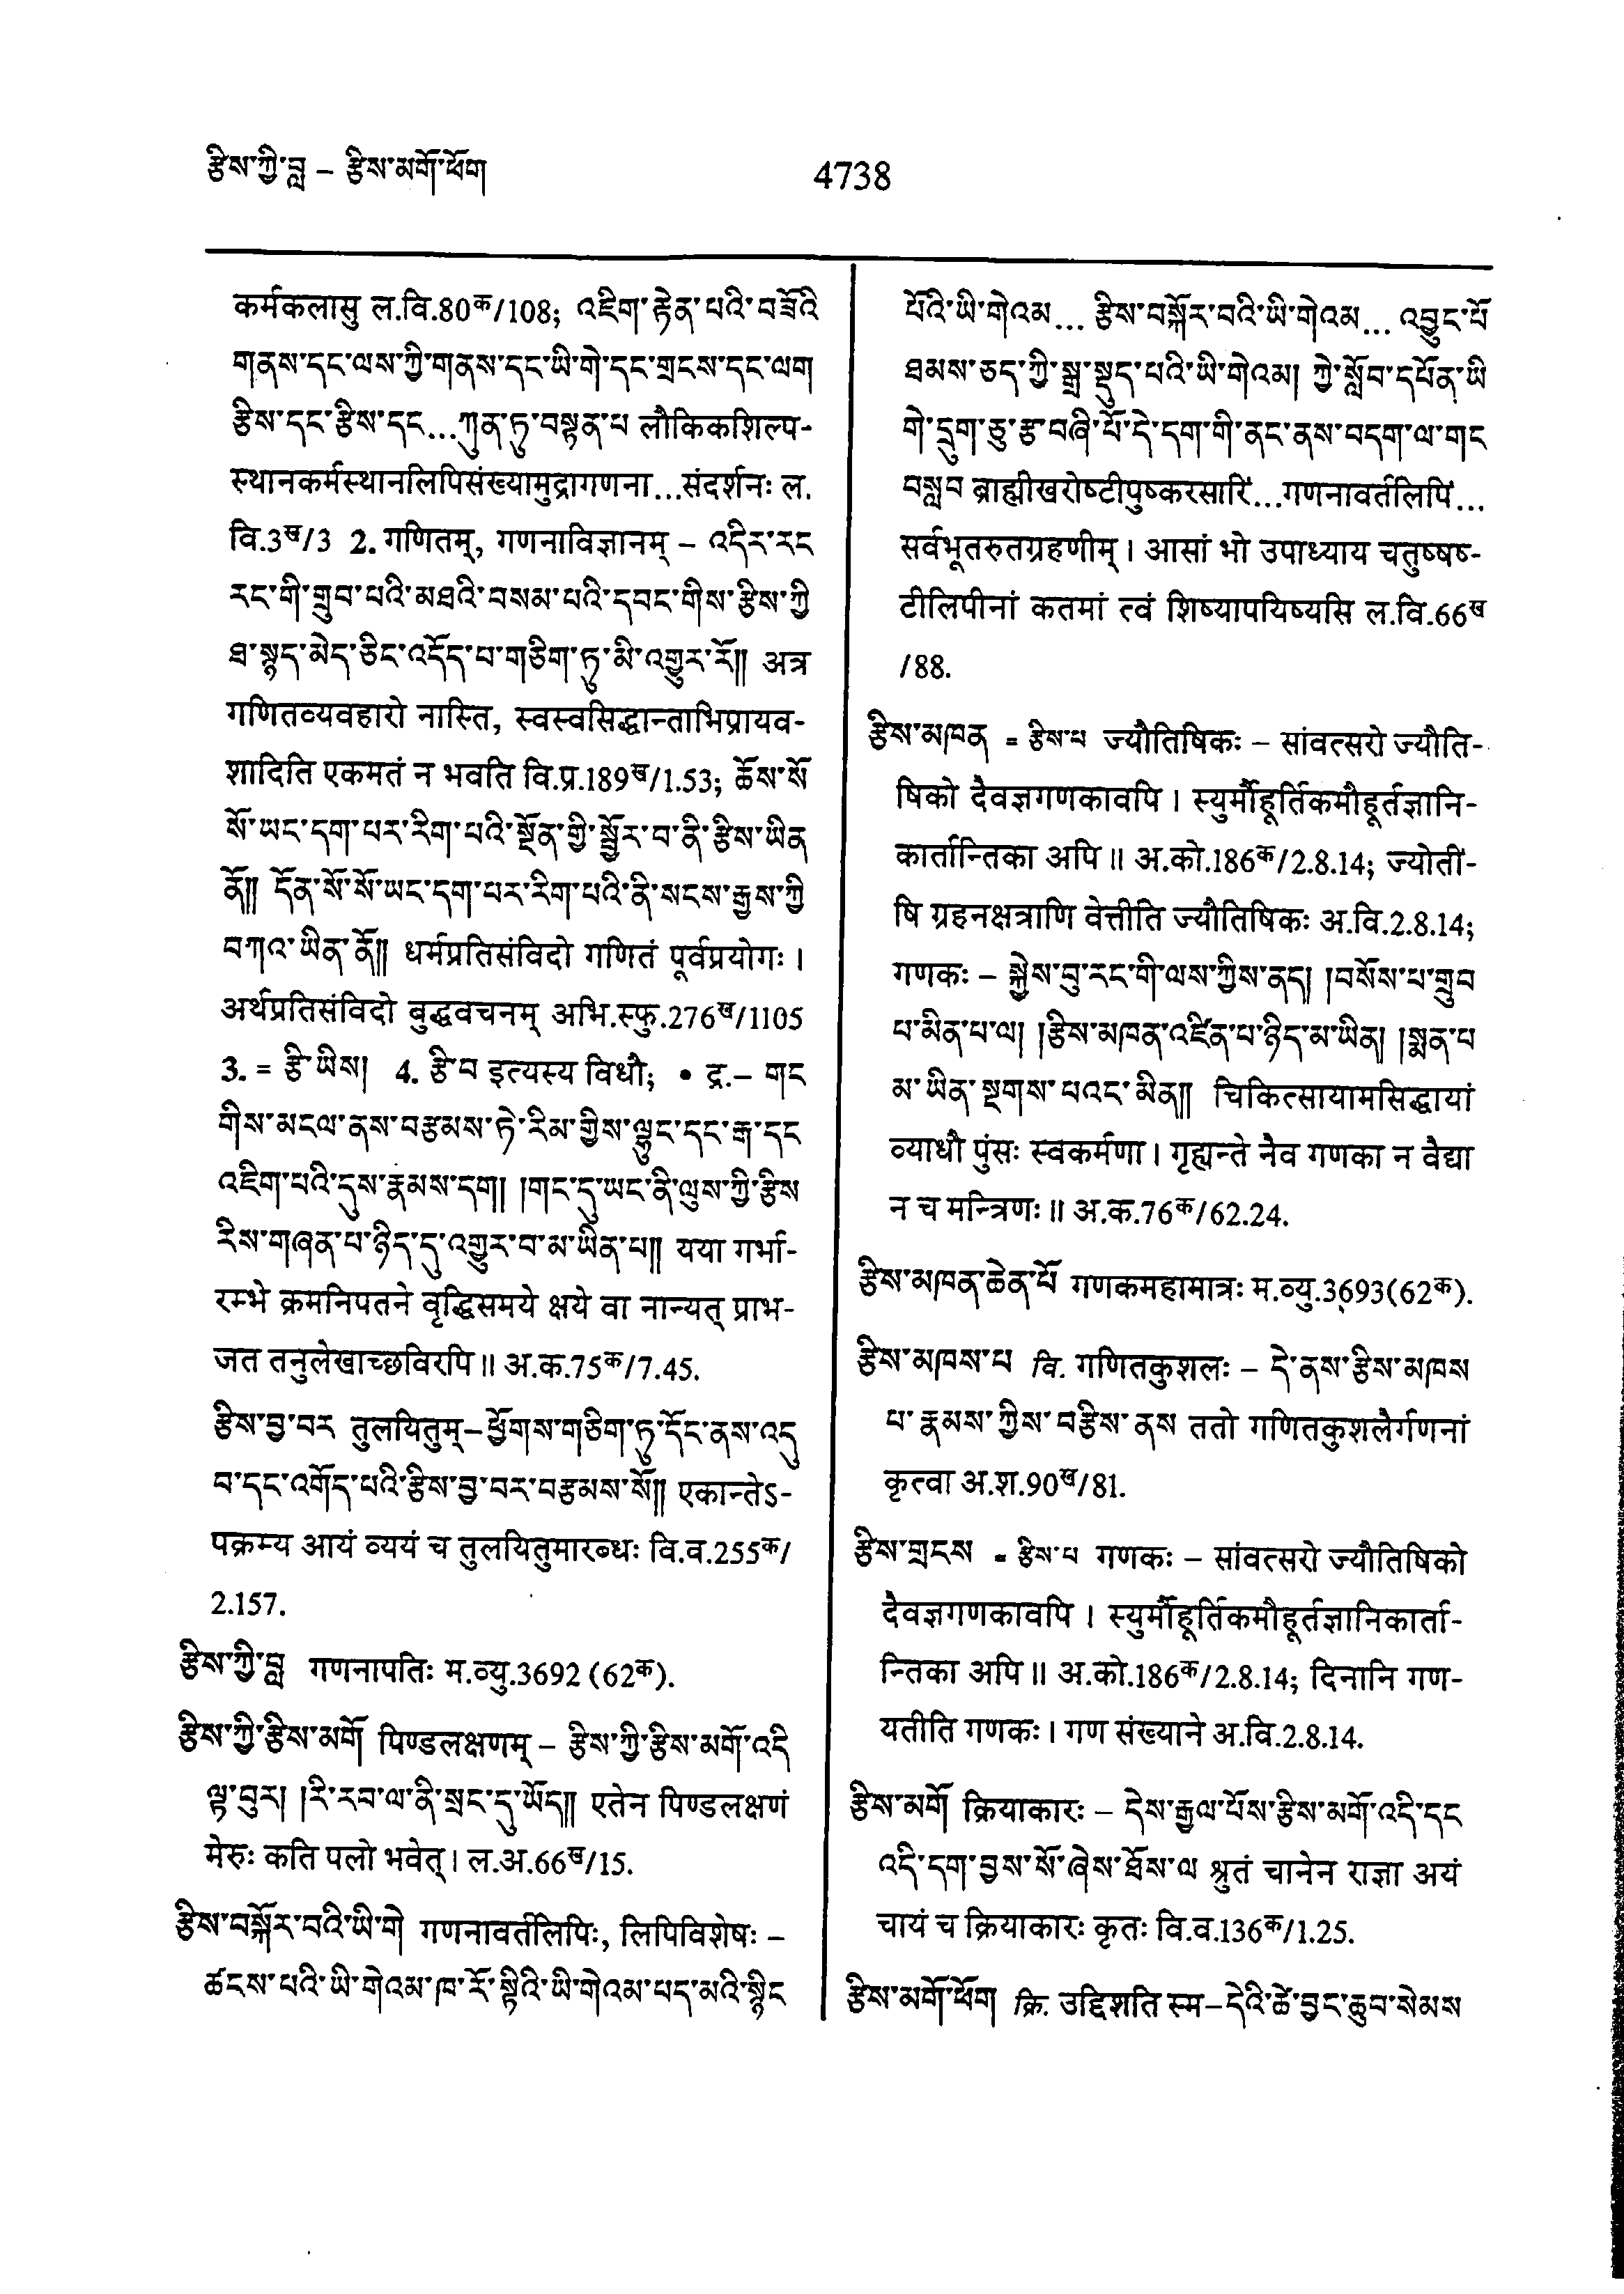 རྩིས་ཀྱི་བླ – རྩིས་མགོ་ཕོག
4738
कर्मकलासु ल.वि.80क/108; འཇིག་རྟེན་པའི་བཟོའི
གནས་དང་ལས་ཀྱི་གནས་དང་ཡི་གེ་དང་གྲངས་དང་ལག
རྩིས་དང་རྩིས་དང...ཀུན་ཏུ་བསྟན་པ लौकिकशिल्प-
स्थानकर्मस्थानलिपिसंख्यामुद्रागणना...संदर्शनः ल.
वि.3ख/3 2. गणितम्, गणनाविज्ञानम् – འདིར་རང
རང་གི་གྲུབ་པའི་མཐའི་བསམ་པའི་དབང་གིས་རྩིས་ཀྱི
ཐ་སྙད་མེད་ཅིང་འདོད་པ་གཅིག་ཏུ་མི་འགྱུར་རོ།། अत्र
गणितव्यवहारो नास्ति, स्वस्वसिद्धान्ताभिप्रायव-
शादिति एकमतं न भवति वि.प्र.189ख/1.53; ཆོས་སོ
སོ་ཡང་དག་པར་རིག་པའི་སྔོན་གྱི་སྦྱོར་བ་ནི་རྩིས་ཡིན
ནོ།། དོན་སོ་སོ་ཡང་དག་པར་རིག་པའི་ནི་སངས་རྒྱས་ཀྱི
བཀའ་ཡིན་ནོ།། धर्मप्रतिसंविदो गणितं पूर्वप्रयोगः।
अर्थप्रतिसंविदो बुद्धवचनम् अभि.स्फु.276ख/1105
3. = རྩི་ཡིས། 4. རྩི་བ इत्यस्य विधौ; • द्र.– གང
གིས་མངལ་ནས་བརྩམས་ཏེ་རིམ་གྱིས་ལྟུང་དང་རྒ་དང
འཇིག་པའི་དུས་རྣམས་དག། །གང་དུ་ཡང་ནི་ལུས་ཀྱི་རྩིས
རིས་གཞན་པ་ཉིད་དུ་འགྱུར་བ་མ་ཡིན་པ།། यया गर्भा-
रम्भे क्रमनिपतने वृद्धिसमये क्षये वा नान्यत् प्राभ-
जत तनुलेखाच्छविरपि॥ अ.क.75क/7.45.
རྩིས་བྱ་བར तुलयितुम्–ཕྱོགས་གཅིག་ཏུ་དོང་ནས་འདུ
བ་དང་འགོད་པའི་རྩིས་བྱ་བར་བརྩམས་སོ།། एकान्तेऽ-
पक्रम्य आयं व्ययं च तुलयितुमारब्धः वि.व.255क/
2.157.
རྩིས་ཀྱི་བླ गणनापतिः म.व्यु.3692 (62क).
རྩིས་ཀྱི་རྩིས་མགོ पिण्डलक्षणम् – རྩིས་ཀྱི་རྩིས་མགོ་འདི
ལྟ་བུར། །རི་རབ་ལ་ནི་སྲང་དུ་ཡོད།། एतेन पिण्डलक्षणं
मेरुः कति पलो भवेत्। ल.अ.66ख/15.
རྩིས་བསྐོར་བའི་ཡི་གེ गणनावर्तलिपिः, लिपिविशेषः –
ཚངས་པའི་ཡི་གེའམ་ཁ་རོ་སྟིའི་ཡི་གེའམ་པད་མའི་སྙིང
པོའི་ཡི་གེའམ... རྩིས་བསྐོར་བའི་ཡི་གེའམ... འབྱུང་པོ
ཐམས་ཅད་ཀྱི་སྒྲ་སྡུད་པའི་ཡི་གེའམ། ཀྱེ་སློབ་དཔོན་ཡི
གེ་དྲུག་ཅུ་རྩ་བཞི་པོ་དེ་དག་གི་ནང་ནས་བདག་ལ་གང
བསླབ ब्राह्मीखरोष्टीपुष्करसारिं...गणनावर्तलिपिं...
सर्वभूतरुतग्रहणीम्। आसां भो उपाध्याय चतुष्षष-
टीलिपीनां कतमां त्वं शिष्यापयिष्यसि ल.वि.66ख
/88.
རྩིས་མཁན = རྩིས་པ ज्यौतिषिकः – सांवत्सरो ज्यौति-
षिको दैवज्ञगणकावपि। स्युर्मौहूर्तिकमौहूर्तज्ञानि-
कार्तान्तिका अपि॥ अ.को.186क/2.8.14; ज्योतीं-
षि ग्रहनक्षत्राणि वेत्तीति ज्यौतिषिकः अ.वि.2.8.14;
गणकः – སྐྱེས་བུ་རང་གི་ལས་ཀྱིས་ནད། །བསོས་པ་གྲུབ
པ་མིན་པ་ལ། །རྩིས་མཁན་འཛིན་པ་ཉིད་མ་ཡིན། །སྨན་པ
མ་ཡིན་སྔགས་པའང་མིན།། चिकित्सायामसिद्धायां
व्याधौ पुंसः स्वकर्मणा। गृह्यन्ते नैव गणका न वैद्या
न च मन्त्रिणः॥ अ.क.76क/62.24.
རྩིས་མཁན་ཆེན་པོ गणकमहामात्रः म.व्यु.3693(62क).
རྩིས་མཁས་པ वि. गणितकुशलः – དེ་ནས་རྩིས་མཁས
པ་རྣམས་ཀྱིས་བརྩིས་ནས ततो गणितकुशलैर्गणनां
कृत्वा अ.श.90ख/81.
རྩིས་གྲངས = རྩིས་པ गणकः – सांवत्सरो ज्यौतिषिको
दैवज्ञगणकावपि। स्युर्मौहूर्तिकमौहूर्तज्ञानिकार्ता-
न्तिका अपि॥ अ.को.186क/2.8.14; दिनानि गण-
यतीति गणकः। गण संख्याने अ.वि.2.8.14.
རྩིས་མགོ क्रियाकारः – དེས་རྒྱལ་པོས་རྩིས་མགོ་འདི་དང
འདི་དག་བྱས་སོ་ཞེས་ཐོས་ལ श्रुतं चानेन राज्ञा अयं
चायं च क्रियाकारः कृतः वि.व.136क/1.25.
རྩིས་མགོ་ཕོག क्रि. उद्दिशति स्म–དེའི་ཚེ་བྱང་ཆུབ་སེམས